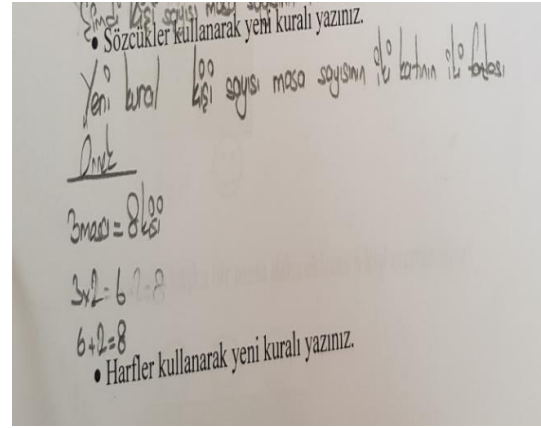 Şimdi kişi sayısı masa
• Sözcükler kullanarak yeni kuralı yazınız.
Yeni kural kişi sayısı masa sayısının iki katının iki fazlası
Örnek
3 masa = 8 kişi
3x2=6
6+2=8
• Harfler kullanarak yeni kuralı yazınız.